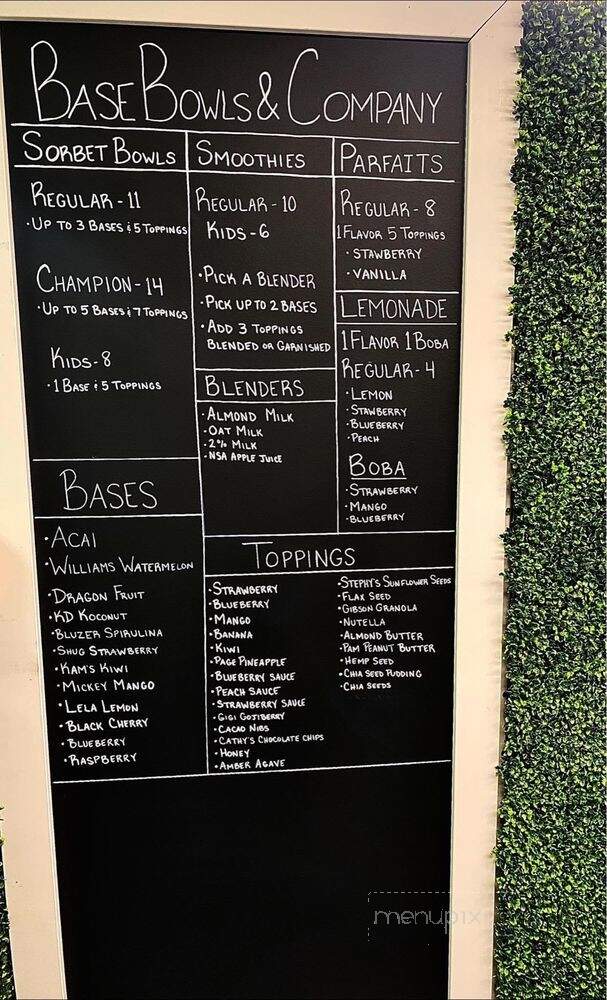 Base Bowls & Company
Sorbet Bowls
Regular - 11
· Up to 3 Bases & 5 Toppings
Champion - 14
· Up to 5 Bases & 7 Toppings
Kids - 8
· 1 Base & 5 Toppings
Smoothies
Regular - 10
Kids - 6
· Pick a Blender
· Pick up to 2 Bases
· Add 3 Toppings
Blended or Garnished
Blenders
· Almond Milk
· Oat Milk
· 2% Milk
· NSA Apple Juice
Parfaits
Regular - 8
1 Flavor 5 Toppings
· Stawberry
· Vanilla
Lemonade
1 Flavor 1 Boba
Regular - 4
· Lemon
· Stawberry
· Blueberry
· Peach
Boba
· Strawberry
· Mango
· Blueberry
Bases
· Acai
· Williams Watermelon
· Dragon Fruit
· KD Koconut
· Bluzer Spirulina
· Shug Strawberry
· Kam's Kiwi
· Mickey Mango
· Lela Lemon
· Black Cherry
· Blueberry
· Raspberry
Toppings
· Strawberry
· Blueberry
· Mango
· Banana
· Kiwi
· Page Pineapple
· Blueberry Sauce
· Peach Sauce
· Strawberry Sauce
· Gigi Gojiberry
· Cacao Nibs
· Cathy's Chocolate Chips
· Honey
· Amber Agave
· Stephy's Sunflower Seeds
· Flax Seed
· Gibson Granola
· Nutella
· Almond Butter
· Pam Peanut Butter
· Hemp Seed
· Chia Seed Pudding
· Chia Seeds
menupix